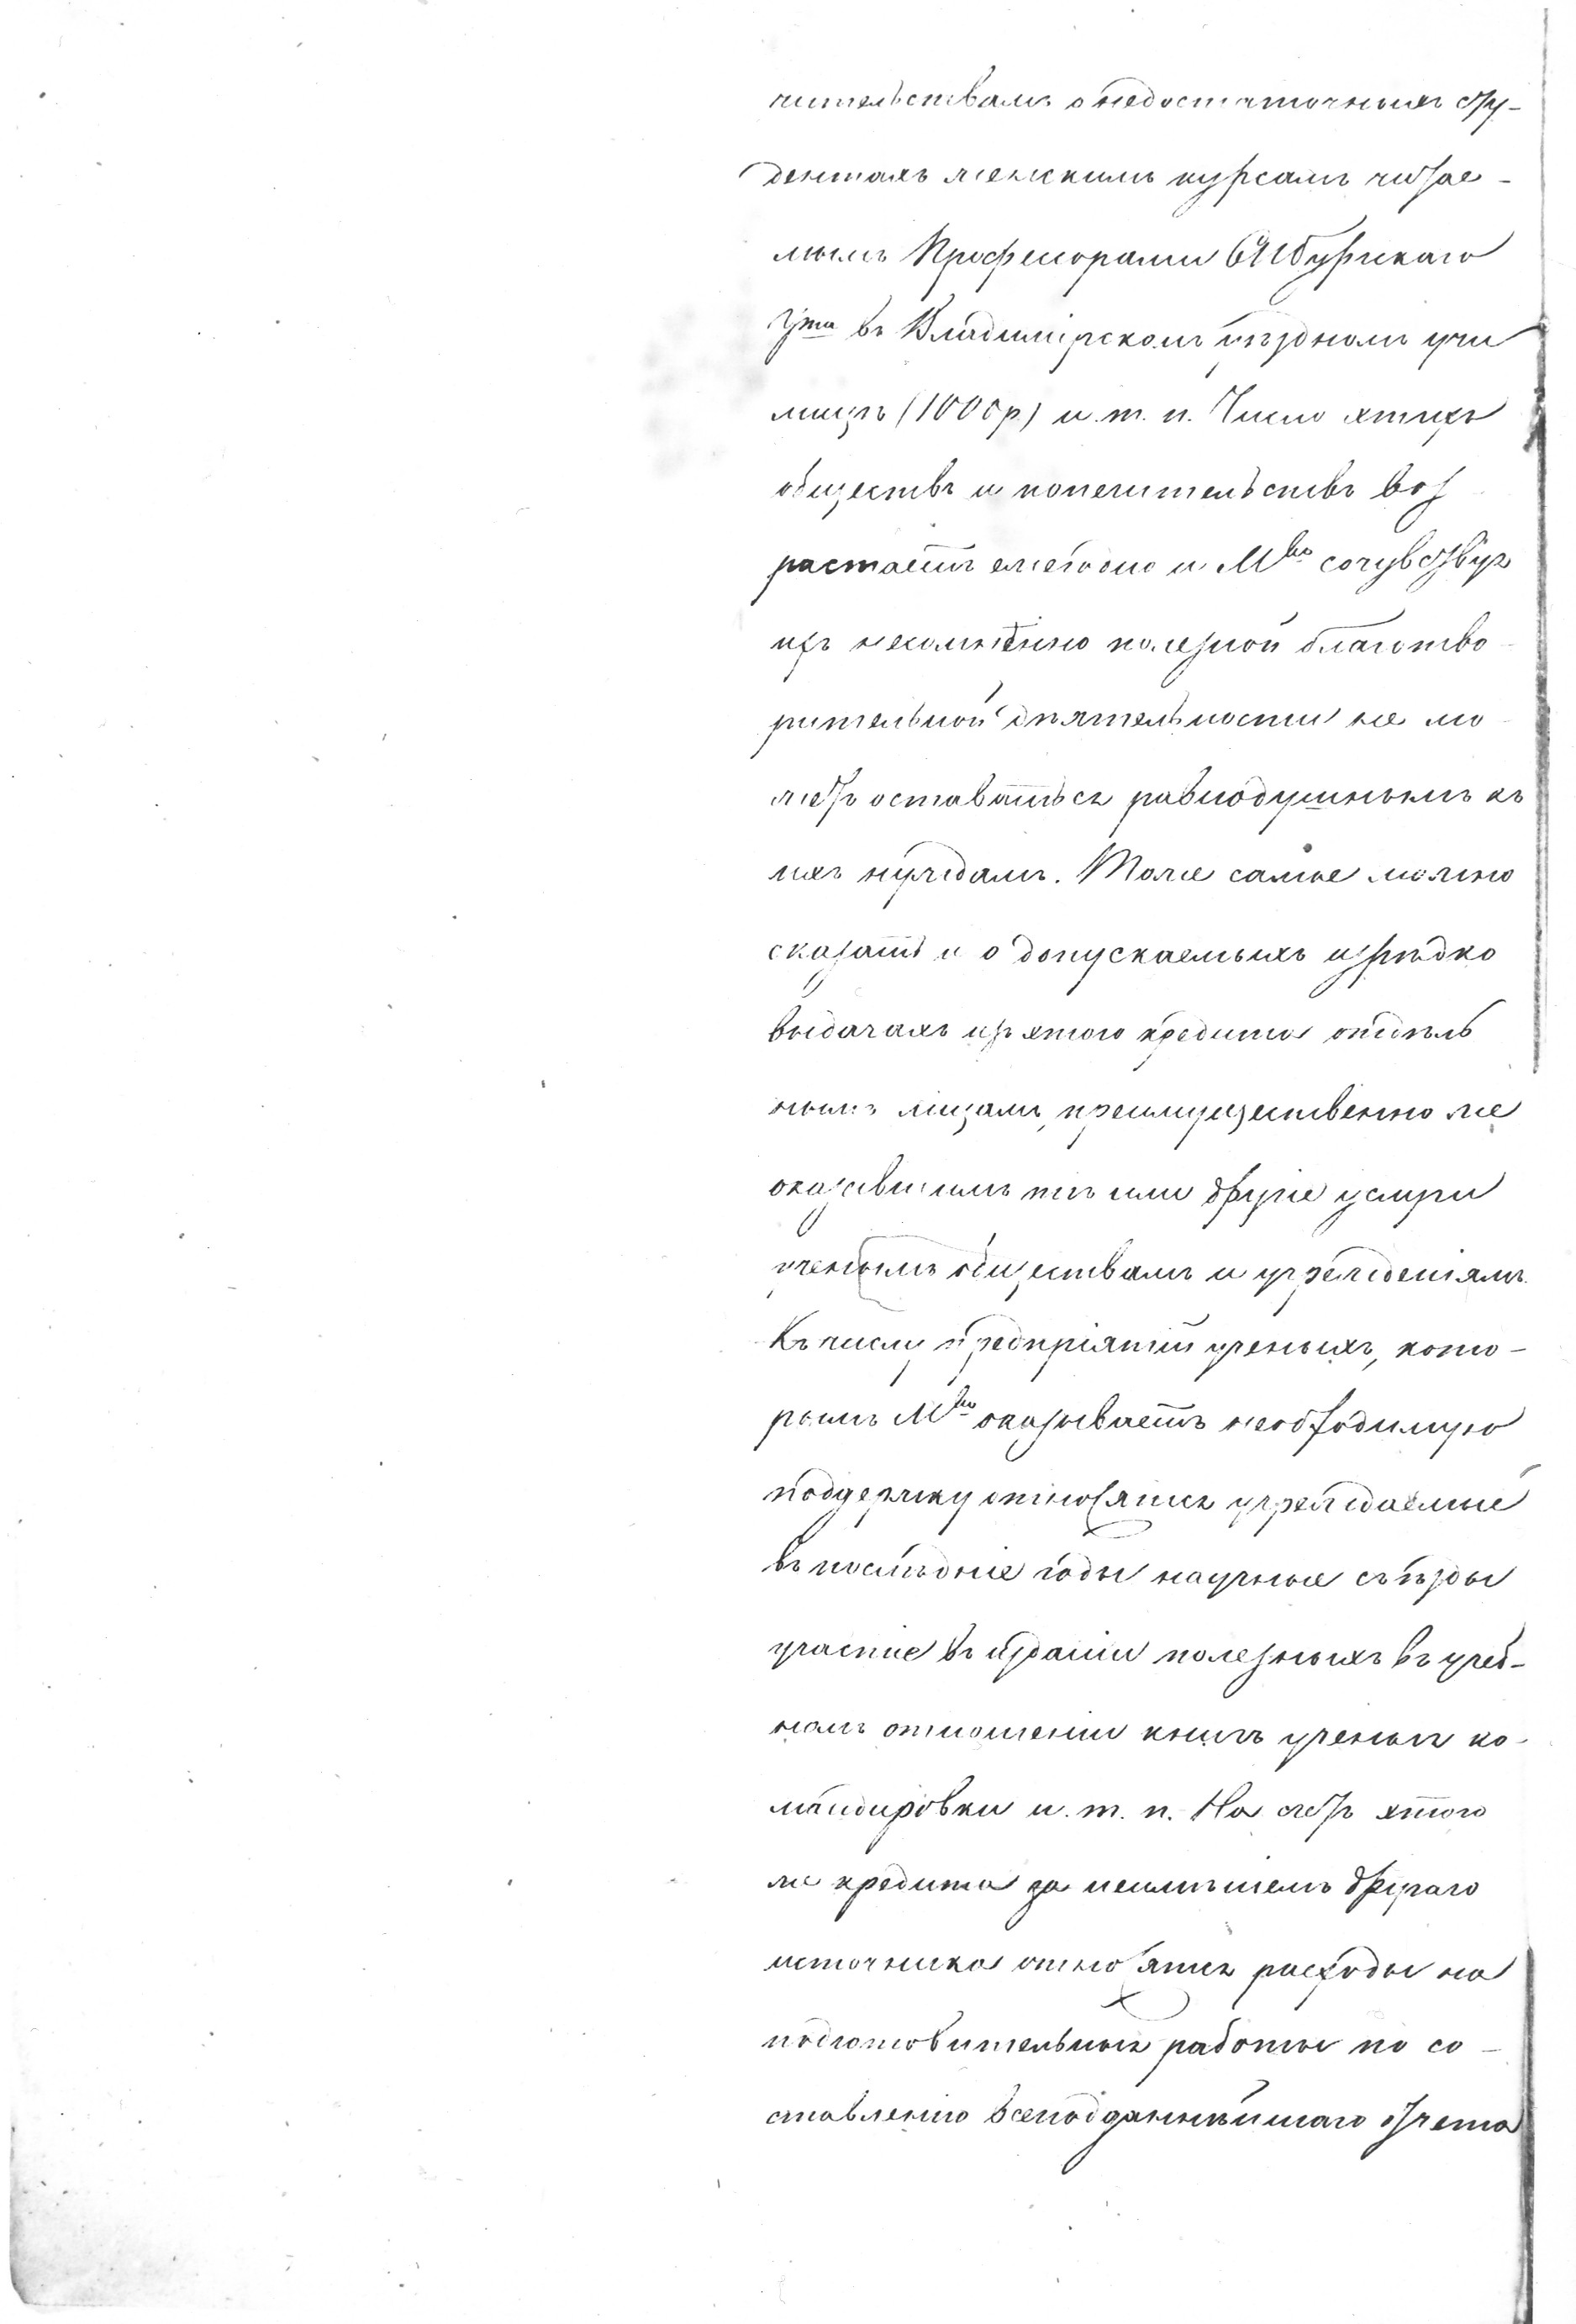 чительствамъ о недостаточныхъ сту-
дентахъ женскимъ курсамъ читае-
мымъ Професорами СПбургскаго
Ута въ Владимірскомъ уѣздномъ учи
лищѣ (1000 р) и. т. п. Число этихъ
обществъ и попечительствъ воз
растаетъ ежегодно и Мво сочувствуя
ихъ несомнѣнно полезной благотво
рительной дѣятельности не мо
жетъ оставаться равнодушнымъ къ
ихъ нуждамъ. Тоже самое можно
сказать и о допускаемыхъ изрѣдко
выдачахъ изъ этого кредита отдѣль
нымъ лицамъ, преимущественно же
оказавшимъ тѣ или другіе услуги
ученымъ обществамъ и учрежденіямъ.
Къ числу предпріятій ученыхъ, кото-
рымъ Мво оказываетъ необходимую
поддержку относятся учреждаемые
въ послѣдніе годы научные съѣзды
участіе въ изданіи полезныхъ въ учеб-
номъ отношеніи книгъ ученыя ко-
мандировки и. т. п. На счетъ этого
же кредита за неимѣніемъ другаго
источника относятся расходы на
подготовительныя работы по со-
ставленію всеподданнѣйшаго отчета